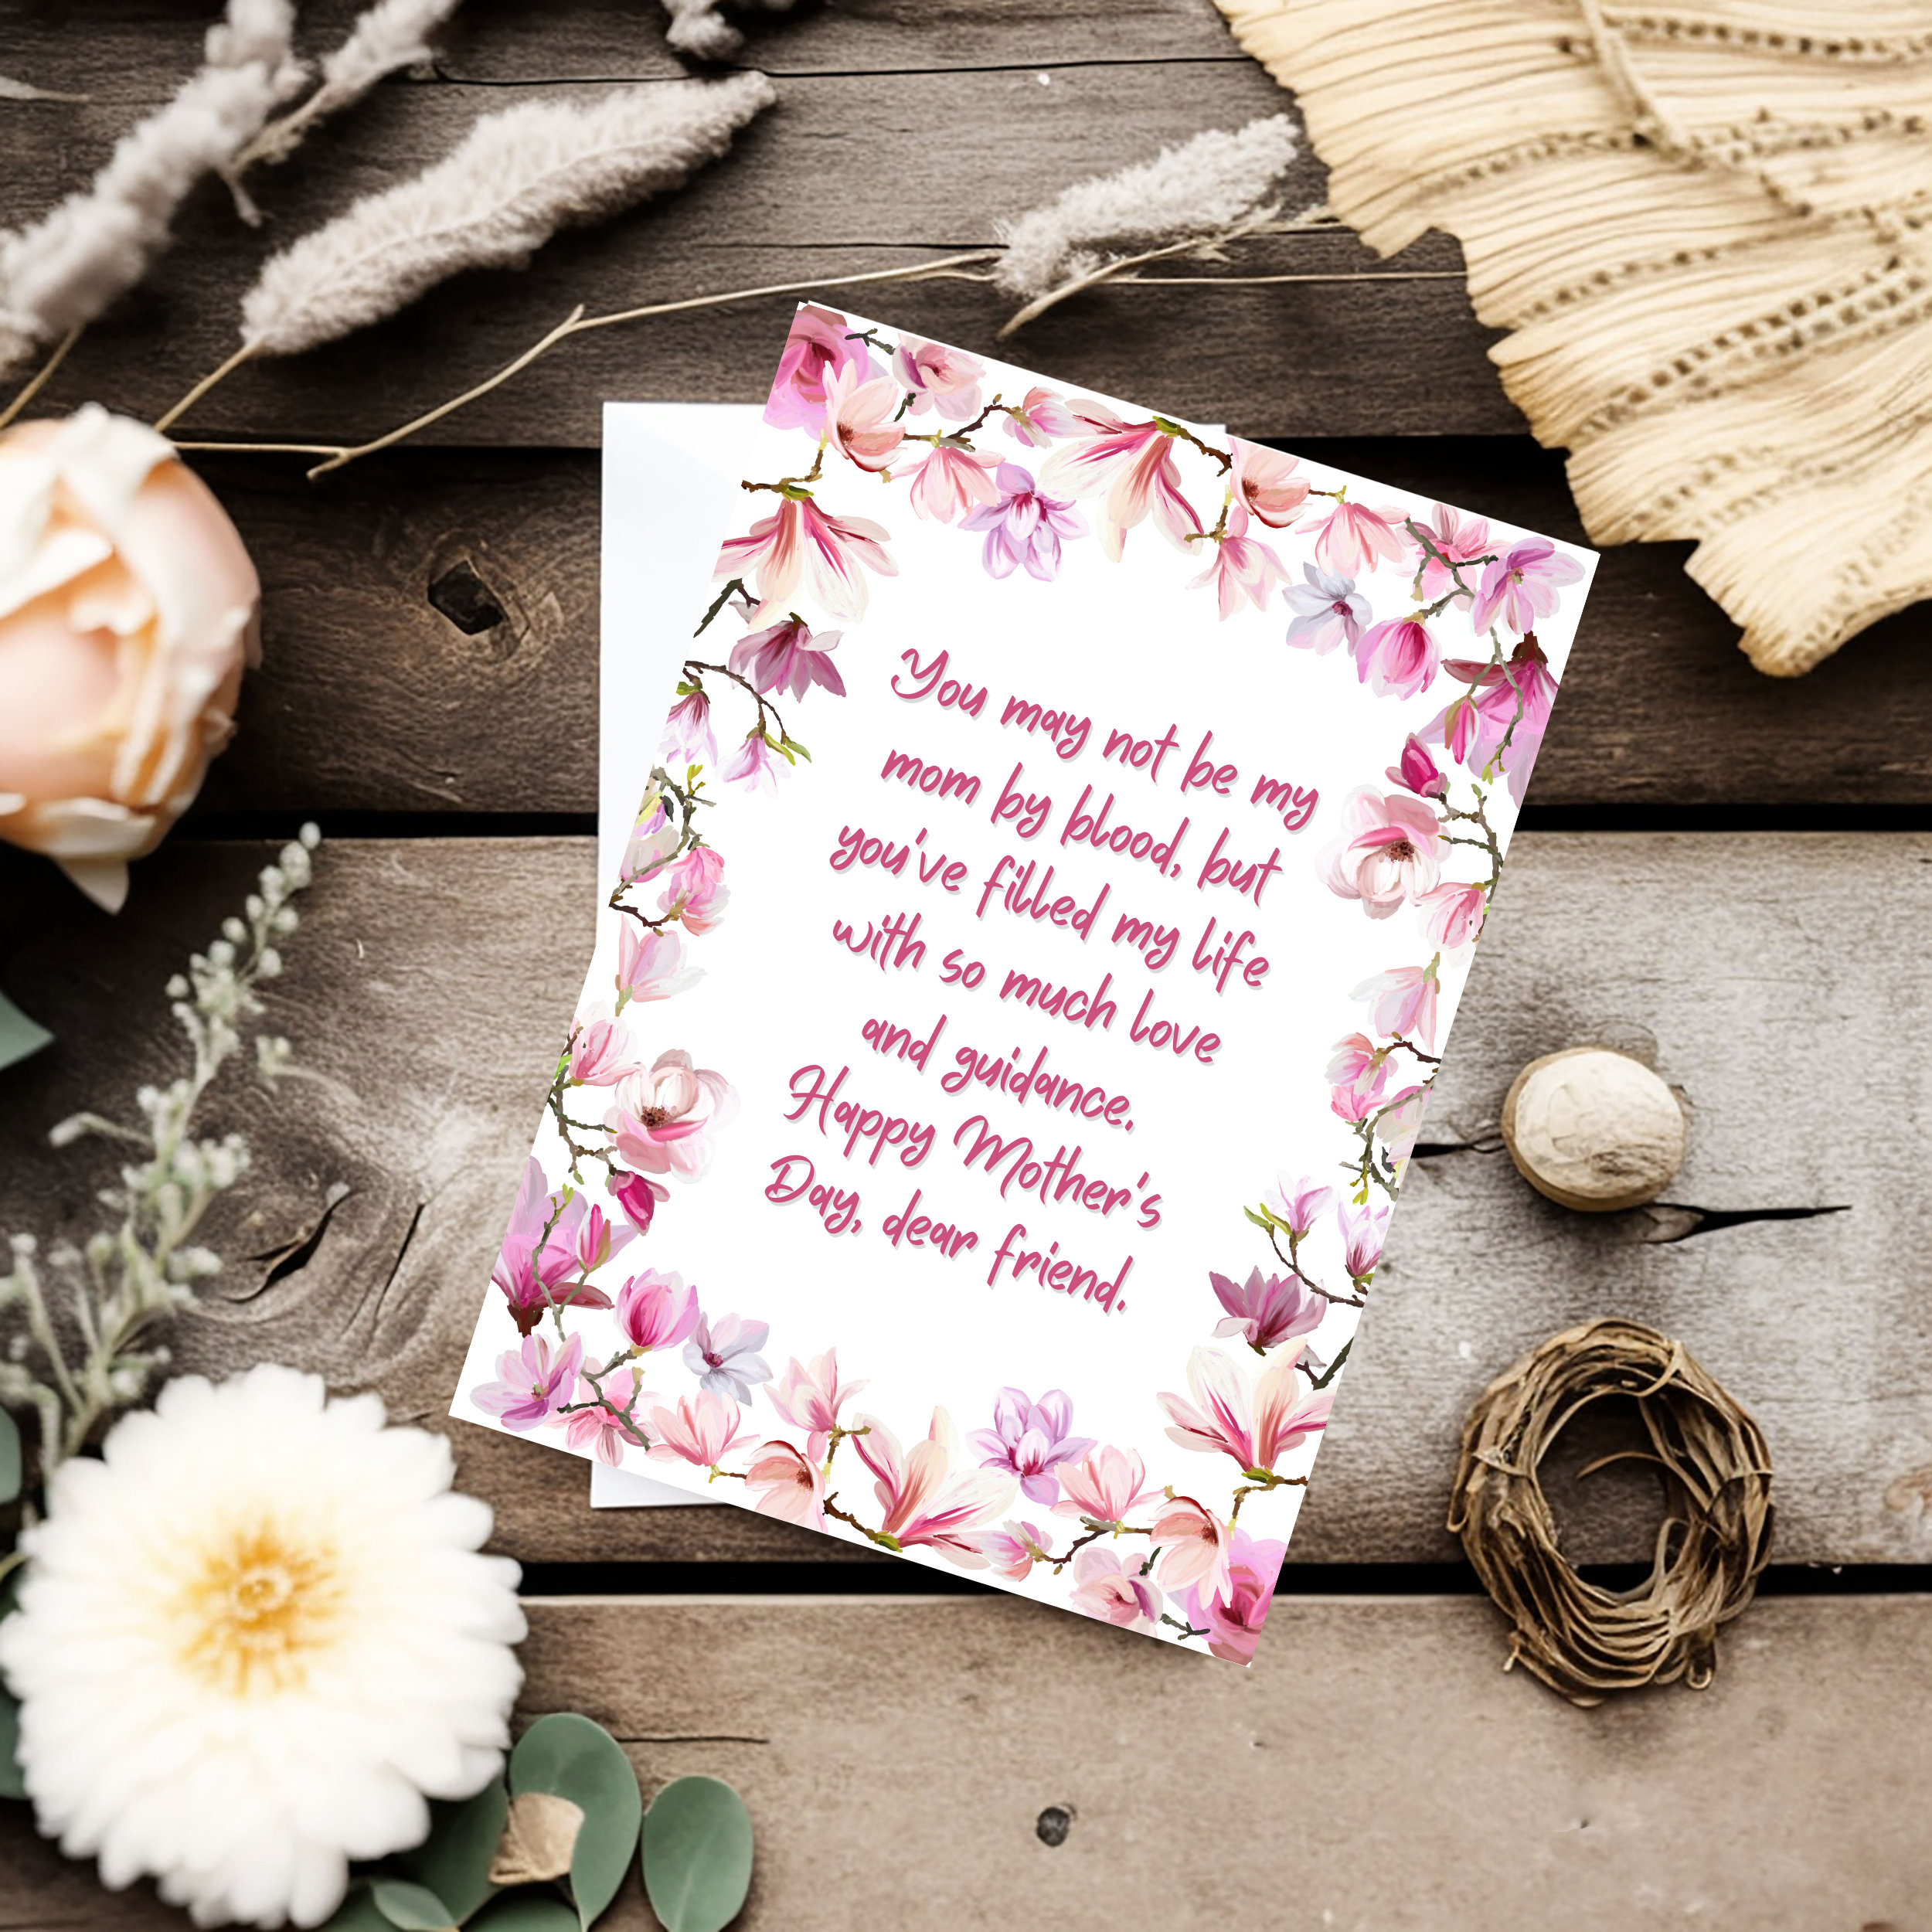 You may not be my
mom by blood, but
you've filled my life
with so much love
and guidance.
Happy Mother's
Day, dear friend.